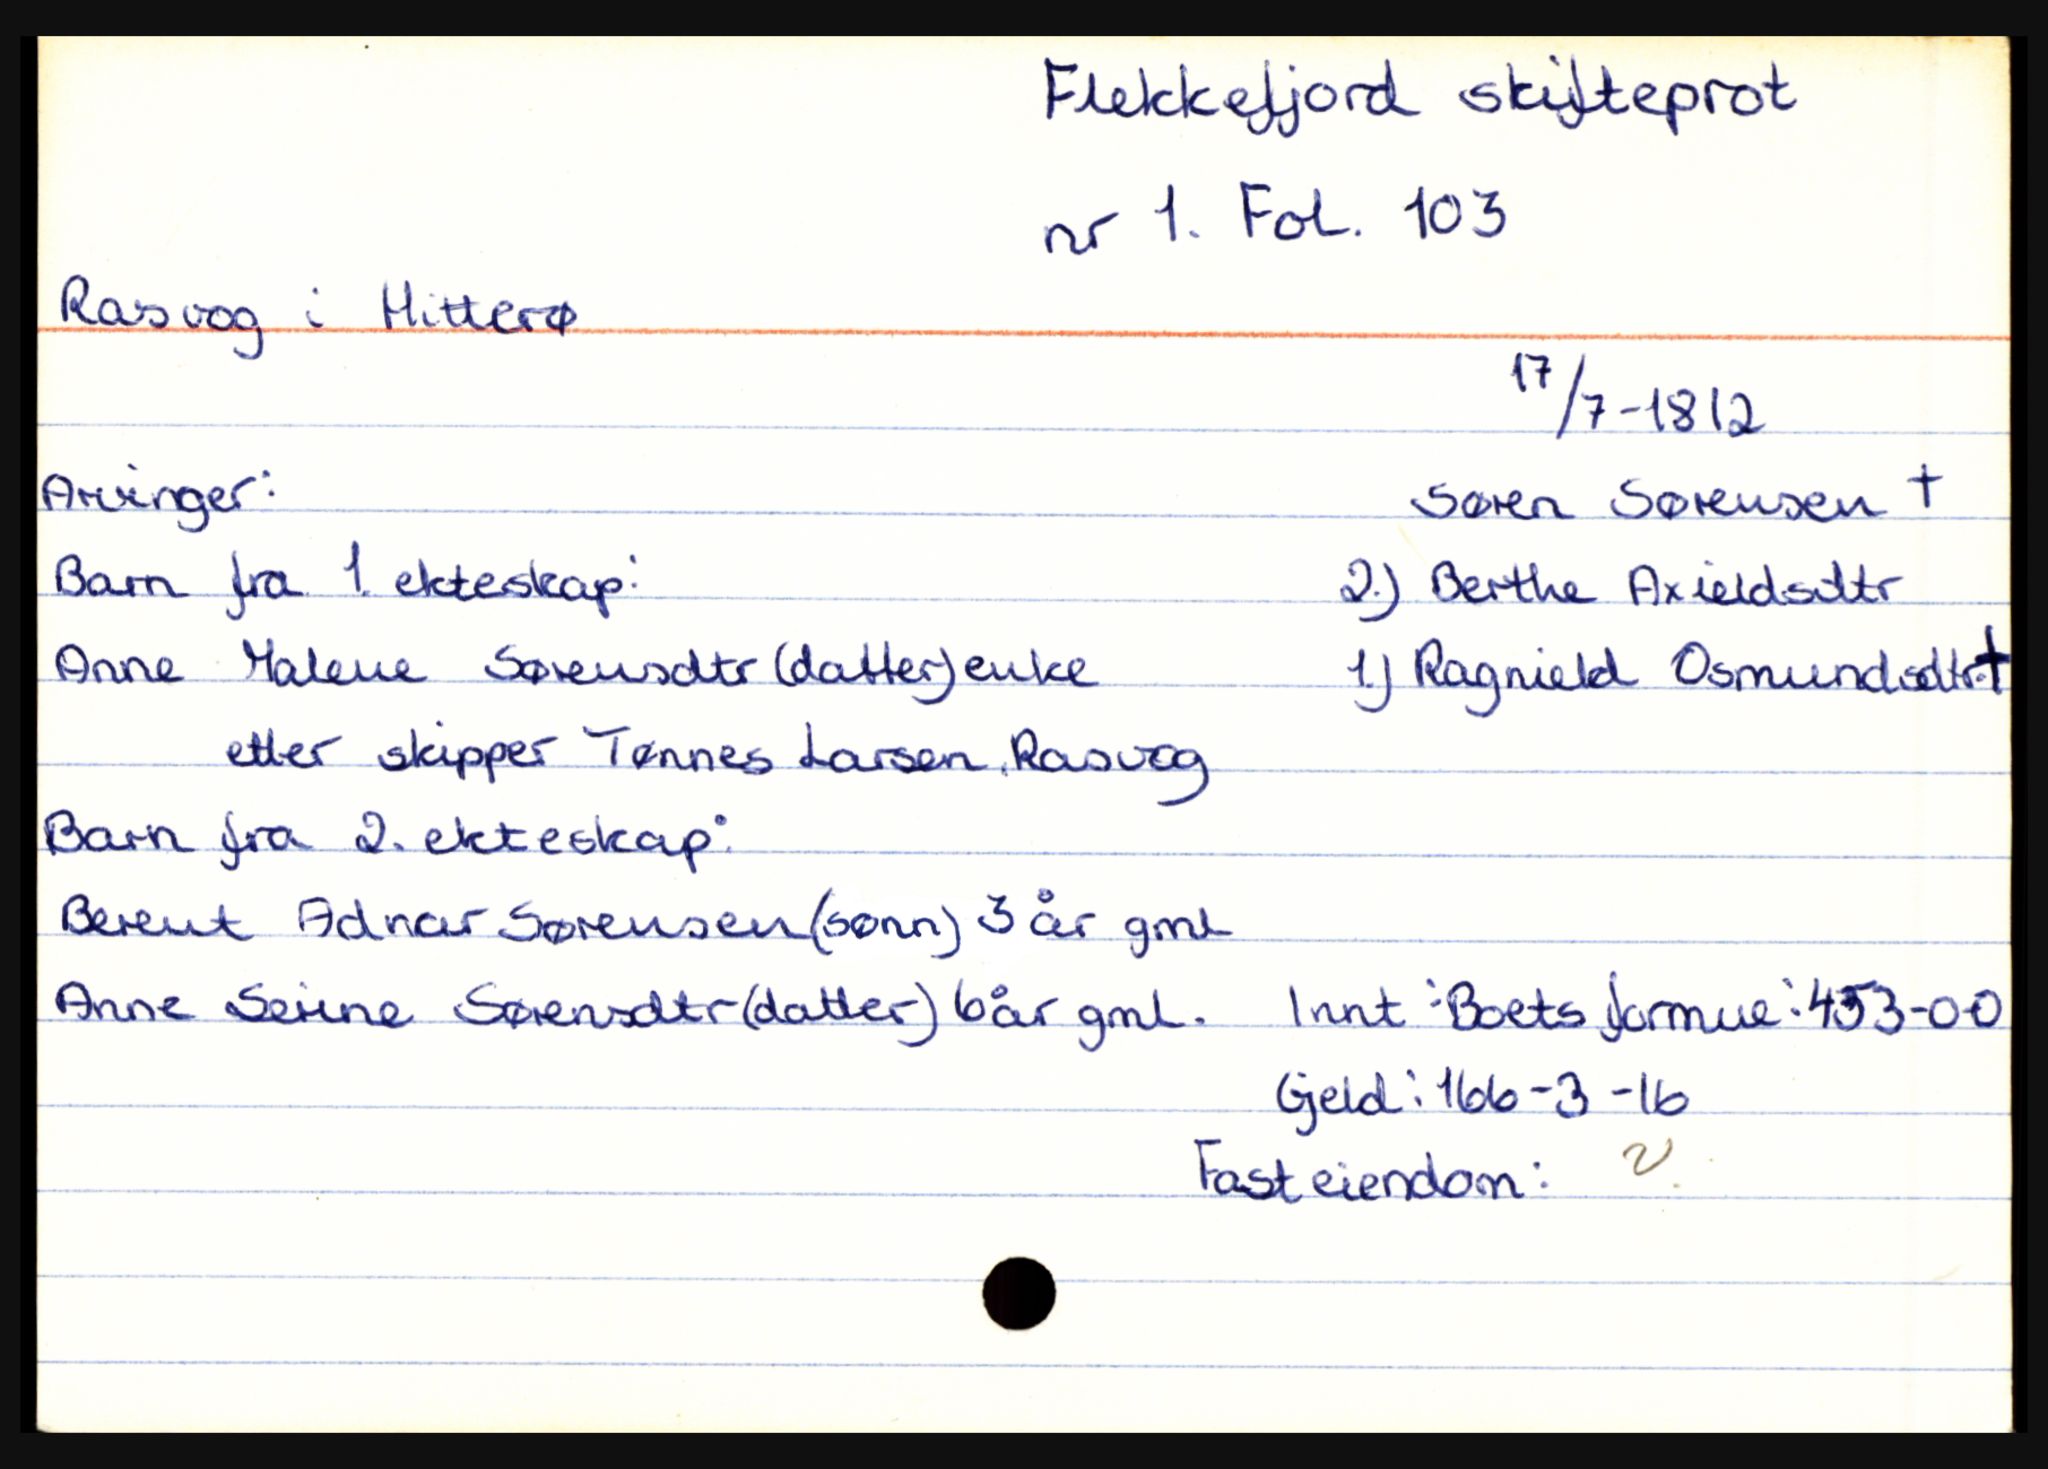 Flekkefjord skifteprot
nr 1. Fol. 103
Rasvog i Hitterø
17/7-1812
Arvinger:
Søren Sørensen †
Barn fra 1. ekteskap:
2.) Berthe Axieldsdtr
Anne Malene Sørensdtr (datter) enke
1.) Ragnield Osmundsdtr. †
etter skipper Tønnes Larsen Rasvog
Barn fra 2. ekteskap:
Berent Adnar Sørensen (sønn) 3 år gml
Anne Serine Sørensdtr (datter) 6 år gml.
Innt: Boets formue: 453-0-0
Gjeld: 166-3-16
Fast eiendom: